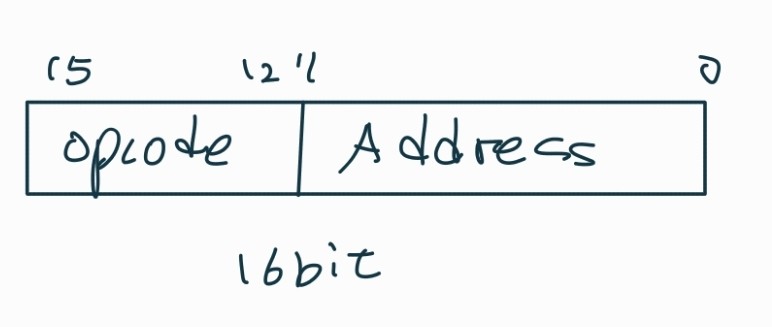 15 12 11 0
opcode Address
16bit